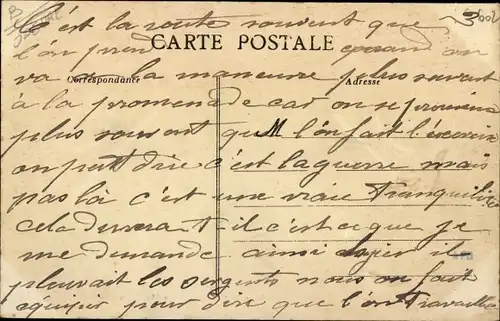 c'est la route souvent que
l'on prend quand on
CARTE POSTALE
va a la maneuvre plus souvent
Correspondance Adresse
à la promenade car on se promène
plus souvent que M l'on fait l'exercice
on peut dire c'est la guerre mais
pas là c'est une vraie Tranquilité
cela durera t-il c'est ce que je
me demande ainsi hier il
pleuvait les sergents nous on fait
équiper pour dire que l'on travaille